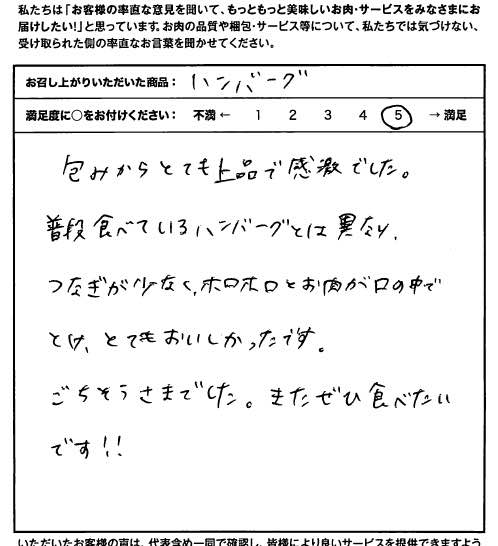 私たちは「お客様の率直な意見を聞いて、もっともっと美味しいお肉・サービスをみなさまにお
届けしたい!」と思っています。お肉の品質や梱包・サービス等について、私たちでは気づけない、
受け取られた側の率直なお言葉を聞かせてください。
お召し上がりいただいた商品： ハンバーグ
満足度に○をお付けください： 不満 ← 1 2 3 4 5 → 満足
包みからとても上品で感激でした。
普段食べているハンバーグとは異なり、
つなぎが少なく、ホロホロとお肉が口の中で
とけ、とてもおいしかったです。
ごちそうさまでした。またぜひ食べたい
です!!
いただいたお客様の声は、代表含め一同で確認し、皆様により良いサービスを提供できますよう